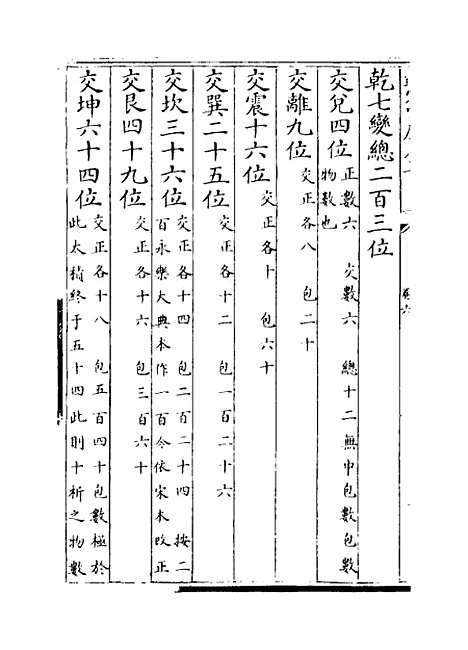 乾七變總二百三位
交兌四位 正數六 交數六 總十二無中包數包數
物數也
交離九位 交正各八 包二十
交震十六位 交正各十 包六十
交巽二十五位 交正各十二 包一百二十六
交坎三十六位 交正各十四 包二百二十四 按二
百永樂大典本作一百今依宋本改正
交艮四十九位 交正各十六 包三百六十
交坤六十四位 交正各十八 包五百四十包數極於
此太積終于五十四此則十析之物數